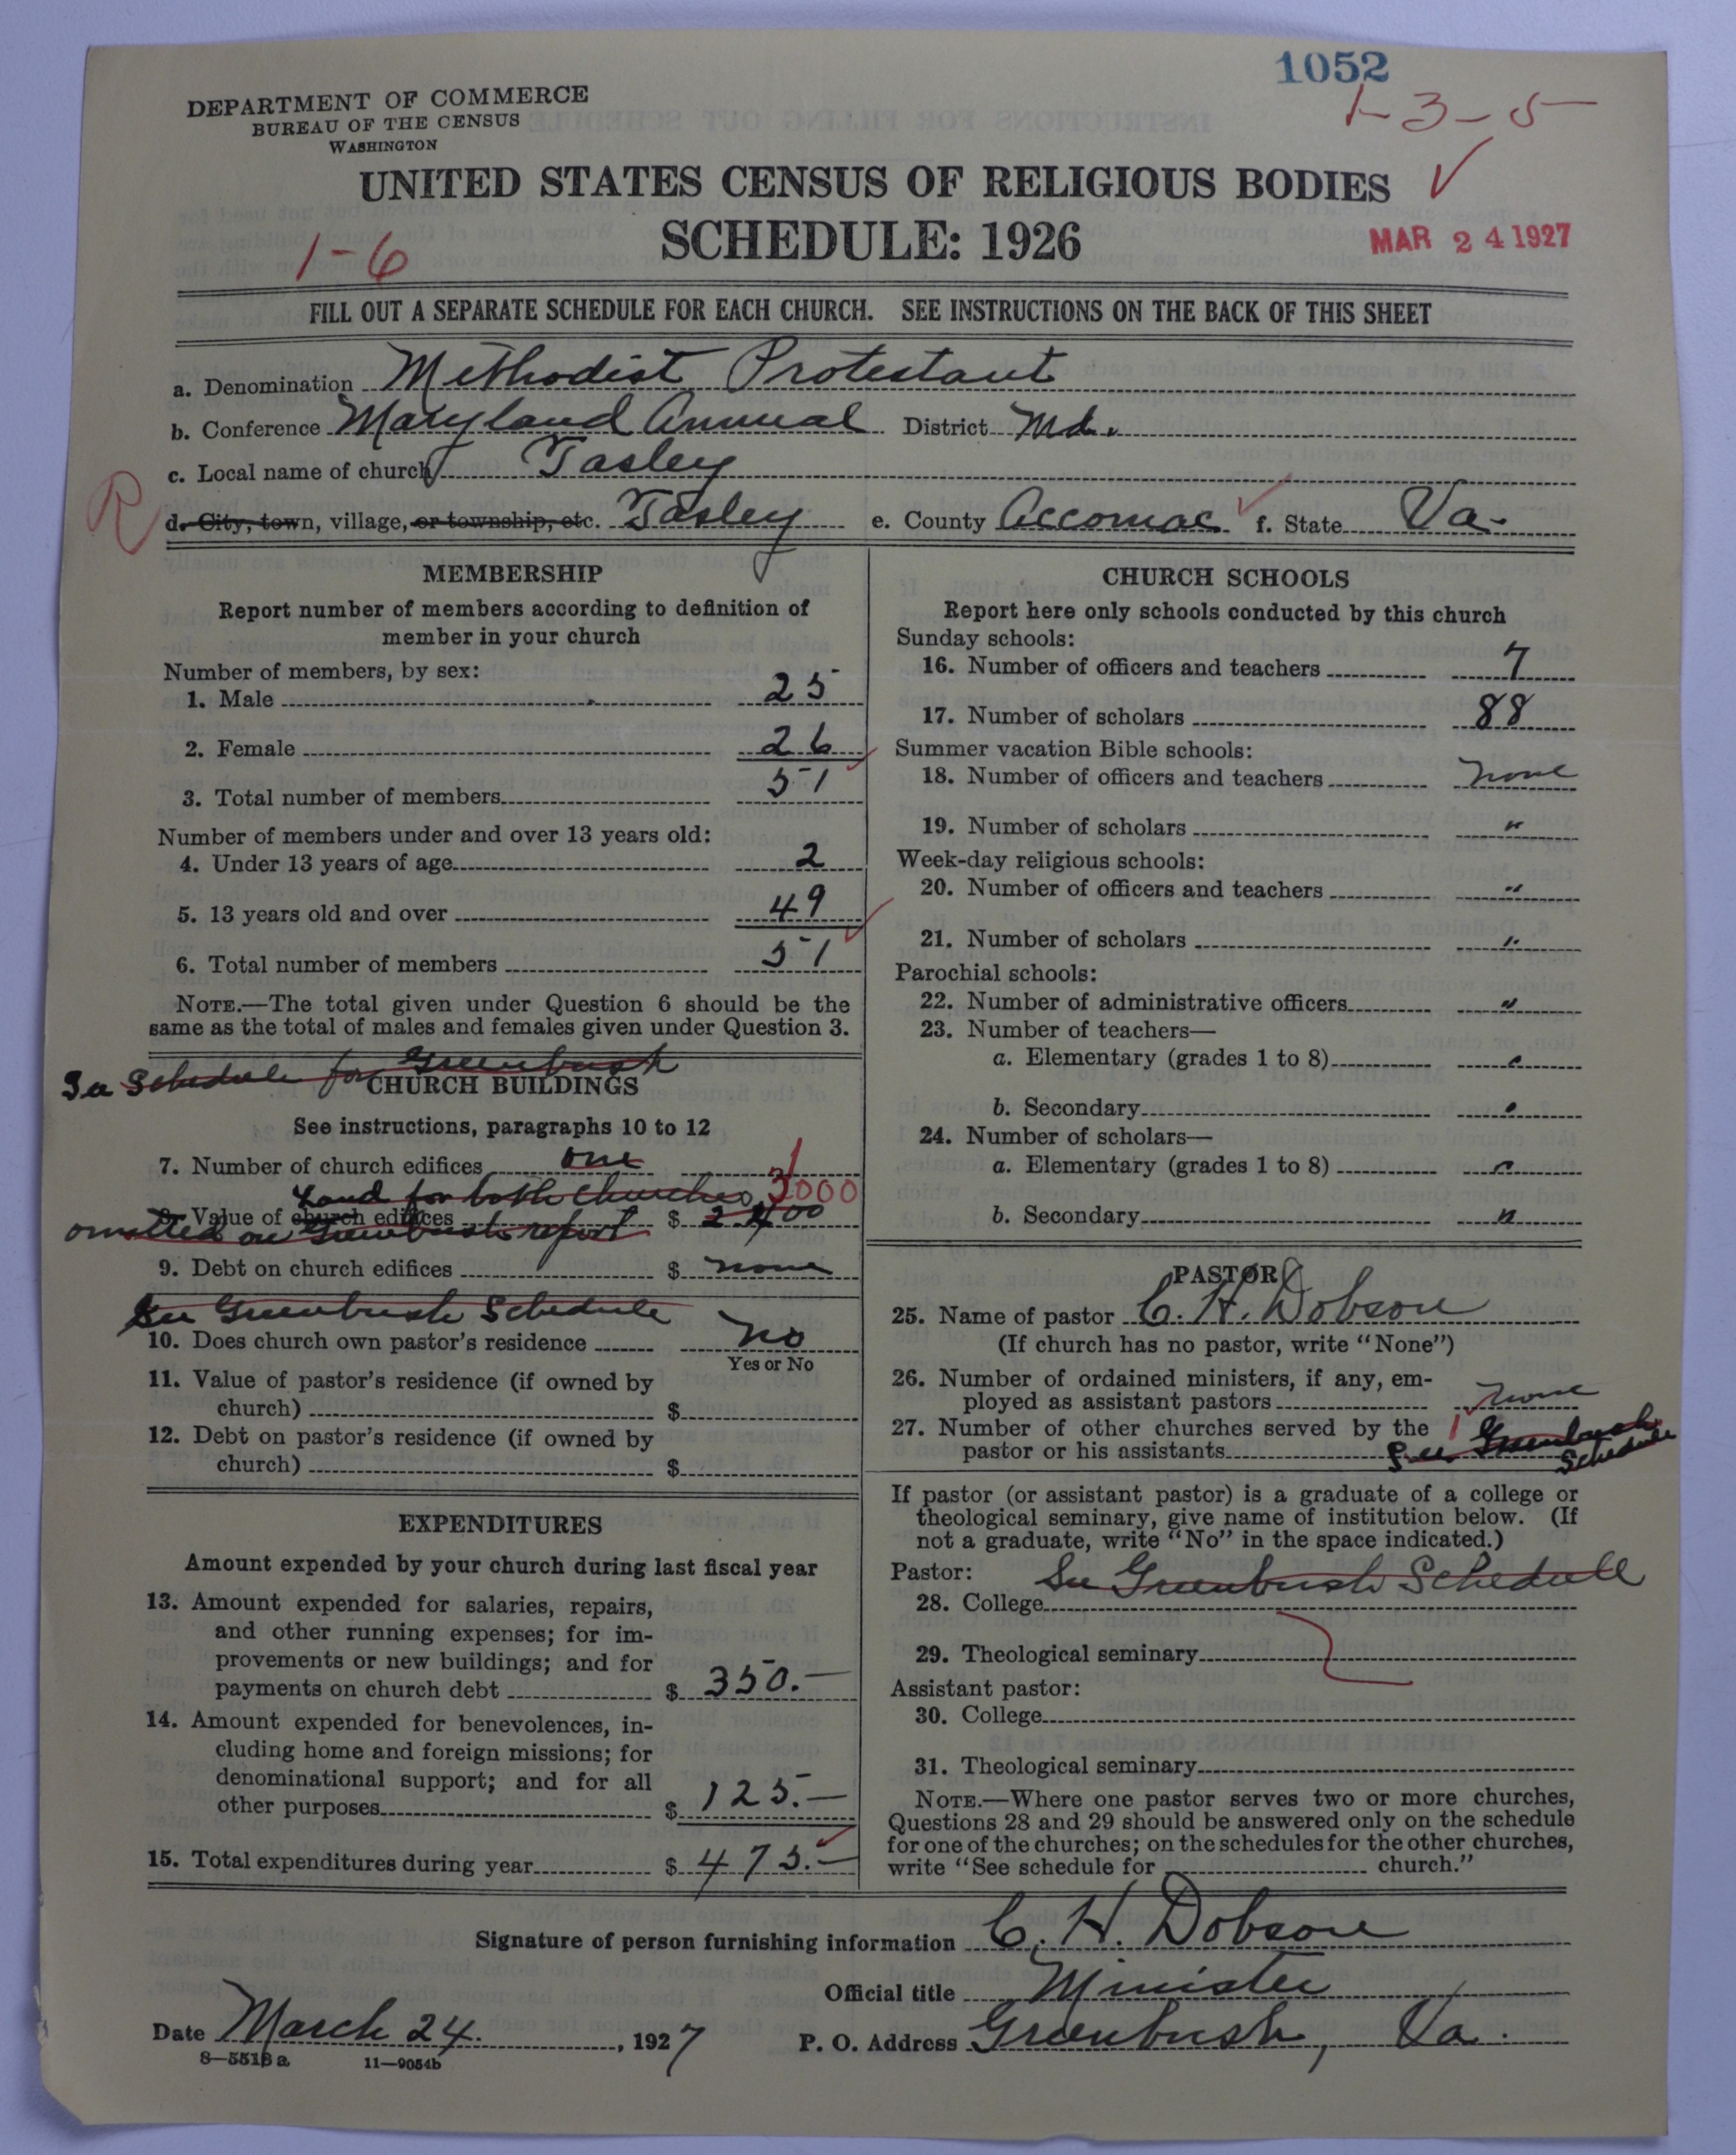 1052
DEPARTMENT OF COMMERCE
BUREAU OF THE CENSUS
WASHINGTON
1-3-5
UNITED STATES CENSUS OF RELIGIOUS BODIES
SCHEDULE: 1926
MAR 24 1927
1-6
FILL OUT A SEPARATE SCHEDULE FOR EACH CHURCH. SEE INSTRUCTIONS ON THE BACK OF THIS SHEET
a. Denomination Methodist Protestant
b. Conference Maryland Annual District Md.
c. Local name of church Tasley
R
d. City, town, village, or township, etc. Tasley e. County Accomac f. State Va.
MEMBERSHIP
Report number of members according to definition of
member in your church
Number of members, by sex:
1. Male 25
2. Female 26
3. Total number of members 51
Number of members under and over 13 years old:
4. Under 13 years of age 2
5. 13 years old and over 49
6. Total number of members 51
NOTE.—The total given under Question 6 should be the
same as the total of males and females given under Question 3.
See Schedule for Greenbush
CHURCH BUILDINGS
See instructions, paragraphs 10 to 12
7. Number of church edifices one 1
Land for both Churches 3000
8. Value of church edifices $ 2400
omitted on Greenbush report
9. Debt on church edifices $ none
See Greenbush Schedule
10. Does church own pastor's residence No
Yes or No
11. Value of pastor's residence (if owned by
church) $
12. Debt on pastor's residence (if owned by
church) $
EXPENDITURES
Amount expended by your church during last fiscal year
13. Amount expended for salaries, repairs,
and other running expenses; for im-
provements or new buildings; and for
payments on church debt $ 350.—
14. Amount expended for benevolences, in-
cluding home and foreign missions; for
denominational support; and for all
other purposes $ 125.—
15. Total expenditures during year $ 475.—
CHURCH SCHOOLS
Report here only schools conducted by this church
Sunday schools:
16. Number of officers and teachers 7
17. Number of scholars 88
Summer vacation Bible schools:
18. Number of officers and teachers none
19. Number of scholars "
Week-day religious schools:
20. Number of officers and teachers "
21. Number of scholars "
Parochial schools:
22. Number of administrative officers "
23. Number of teachers—
a. Elementary (grades 1 to 8) "
b. Secondary "
24. Number of scholars—
a. Elementary (grades 1 to 8) "
b. Secondary "
PASTOR
25. Name of pastor C. H. Dobson
(If church has no pastor, write "None")
26. Number of ordained ministers, if any, em-
ployed as assistant pastors none
27. Number of other churches served by the 1
pastor or his assistants See Greenbush Schedule
If pastor (or assistant pastor) is a graduate of a college or
theological seminary, give name of institution below. (If
not a graduate, write "No" in the space indicated.)
Pastor: See Greenbush Schedule
28. College
29. Theological seminary
Assistant pastor:
30. College
31. Theological seminary
NOTE.—Where one pastor serves two or more churches,
Questions 28 and 29 should be answered only on the schedule
for one of the churches; on the schedules for the other churches,
write "See schedule for church."
Signature of person furnishing information C. H. Dobson
Official title Minister
Date March 24, 1927 P. O. Address Greenbush, Va.
8—5518a 11—9054b